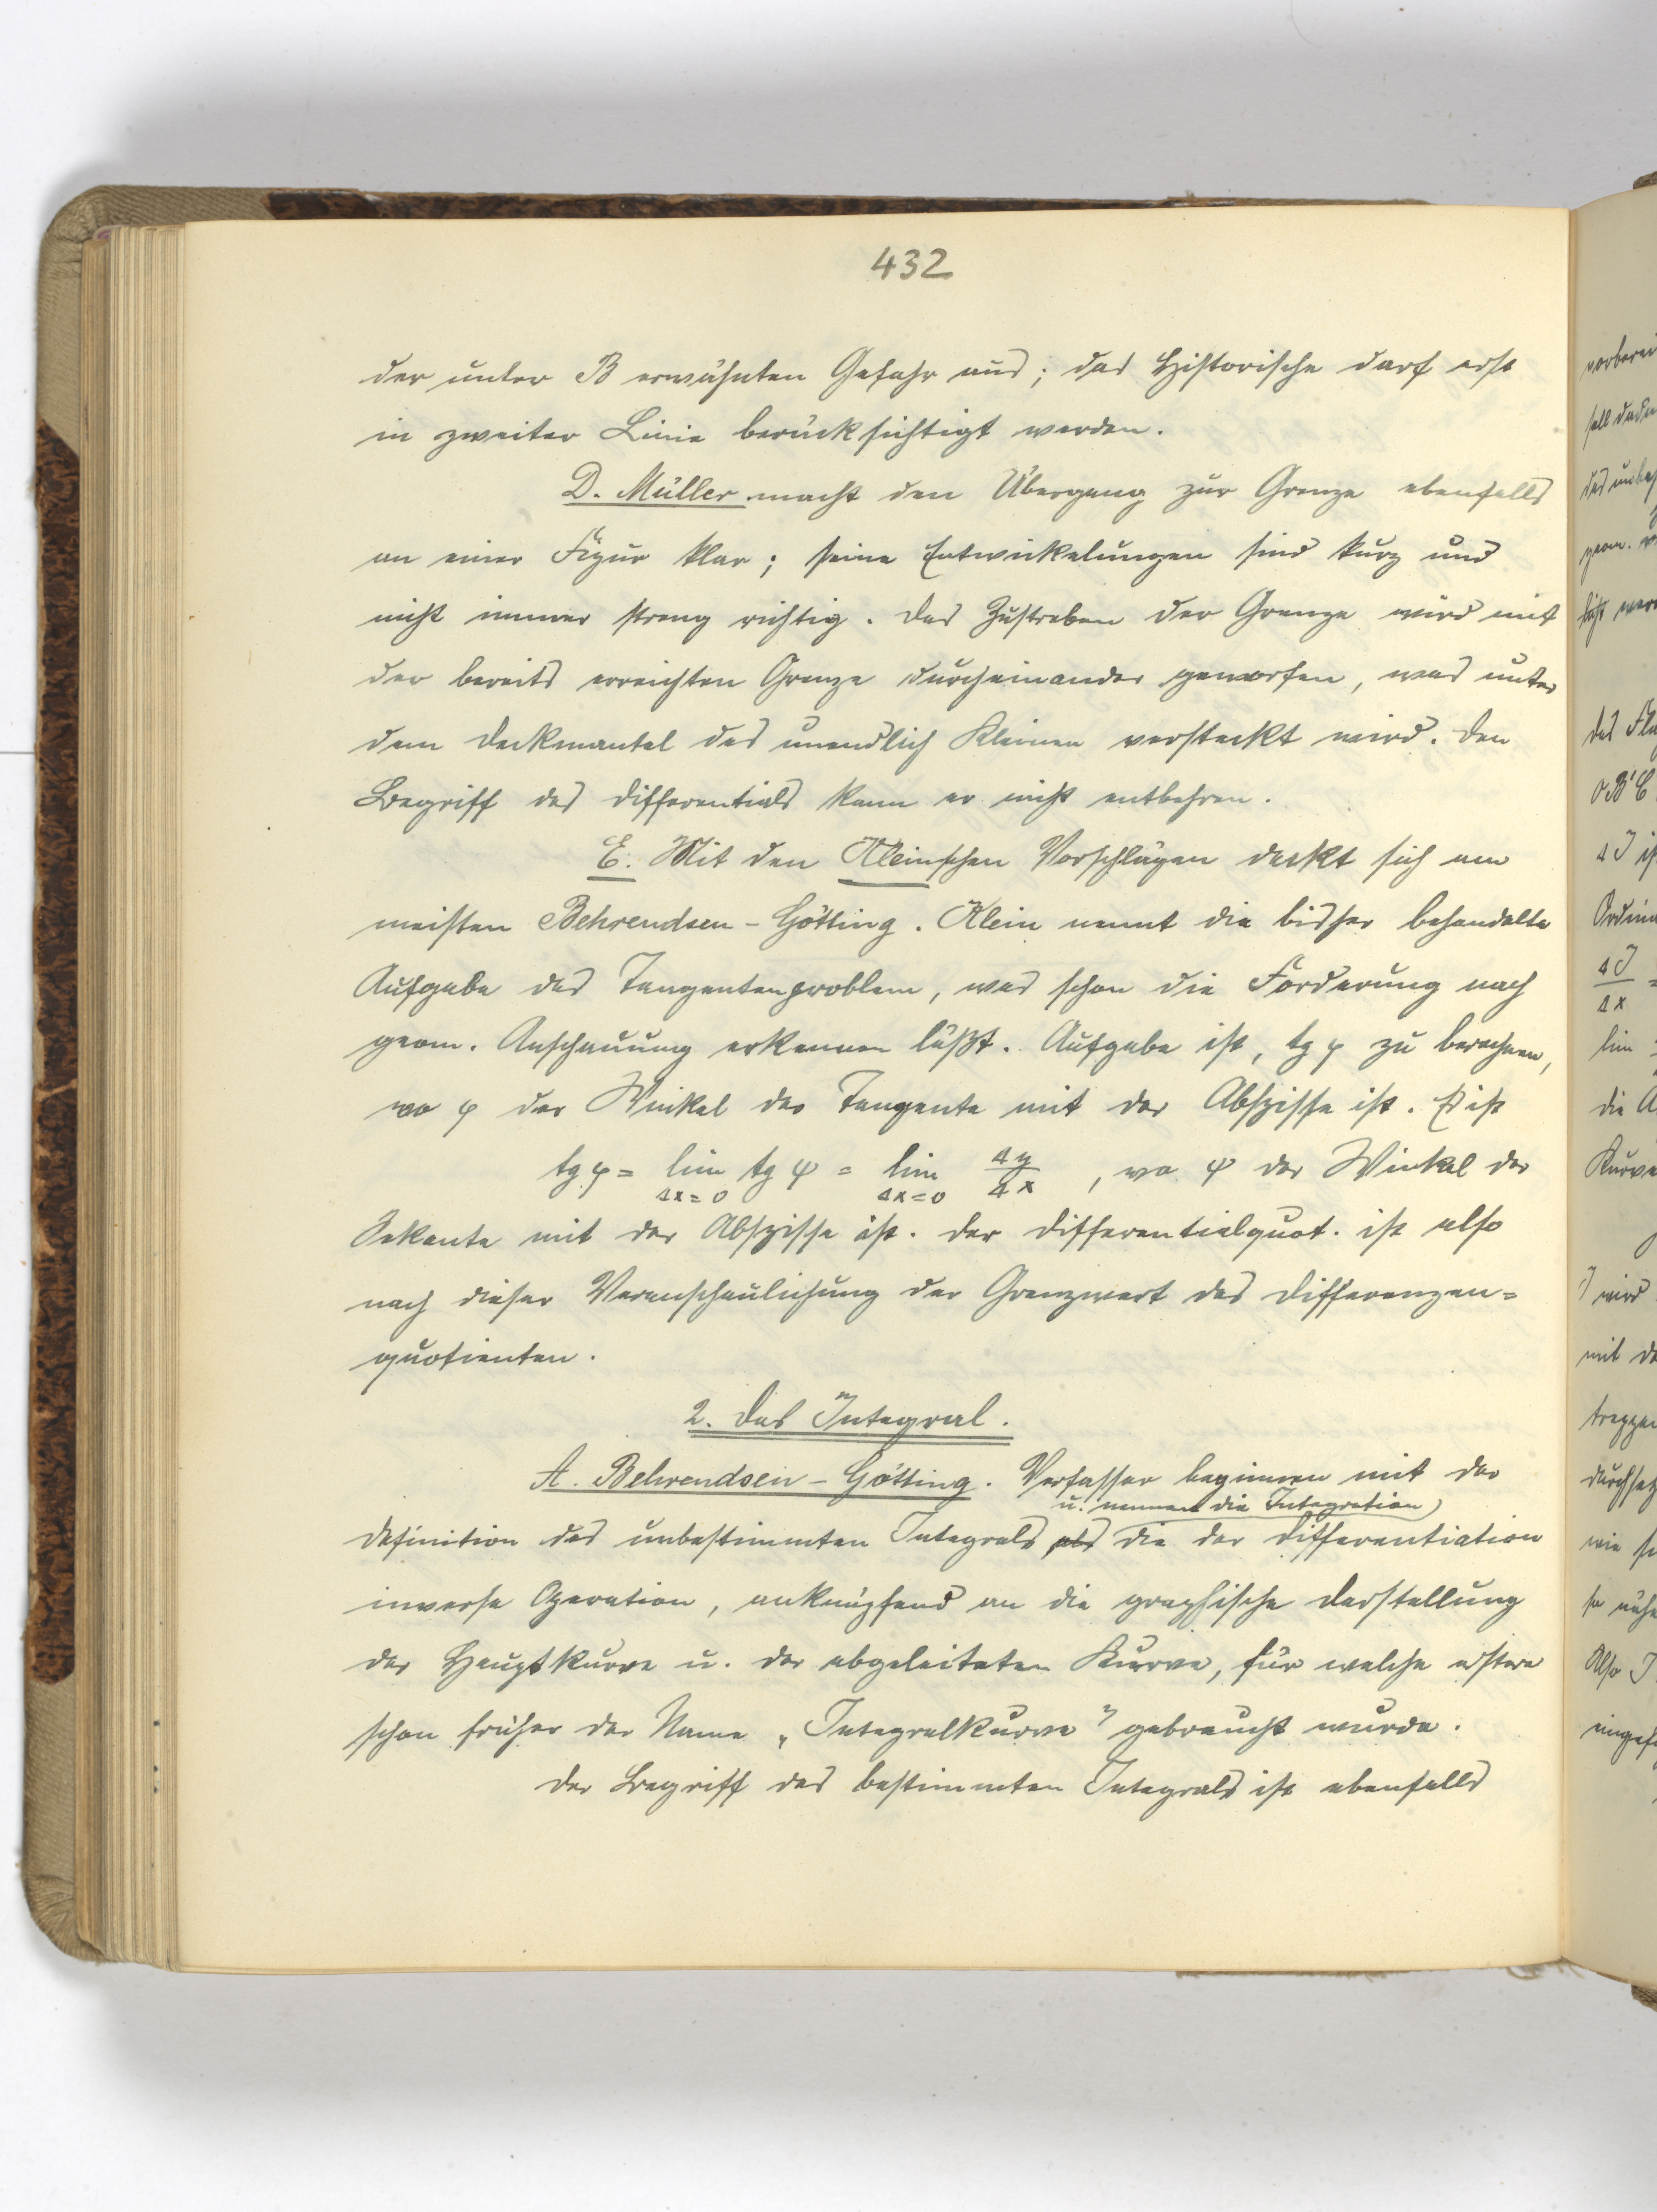 432
der unter B erwähnten Gefahr aus; das Historische darf erst
in zweiter Linie berücksichtigt werden.
D. Müller macht den Übergang zur Grenze ebenfalls
an einer Figur klar; seine Entwickelungen sind kurz und
nicht immer streng richtig. Das Zustreben der Grenze wird mit
der bereits erreichten Grenze durcheinander geworfen, was unter
dem Deckmantel des unendlich Kleinen versteckt wird. Den
Begriff des Differentials kann er nicht entbehren.
E. Mit den Kleinschen Vorschlägen deckt sich am
meisten Behrendsen-Götting. Klein nennt die bisher behandelte
Aufgabe das Tangentenproblem, was schon die Forderung nach
geom. Anschauung erkennen läßt. Aufgabe ist, tg φ zu berechnen,
wo φ der Winkel der Tangente mit der Abszisse ist. Es ist
tg φ = lim tg ψ = lim Δy/Δx, wo ψ der Winkel der
Δx=0 Δx=0
Sekante mit der Abszisse ist. Der Differentialquot. ist also
nach dieser Veranschaulichung der Grenzwert des Differenzen=
quotienten.
2. Das Integral.
A. Behrendsen-Götting. Verfasser beginnen mit der
u. nennen die Integration
Definition des unbestimmten Integrals als die der Differentiation
inverse Operation, anknüpfend an die graphische Darstellung
der Hauptkurve u. der abgeleiteten Kurve, für welche erstere
schon früher der Name „Integralkurve" gebraucht wurde.
Der Begriff des bestimmten Integrals ist ebenfalls